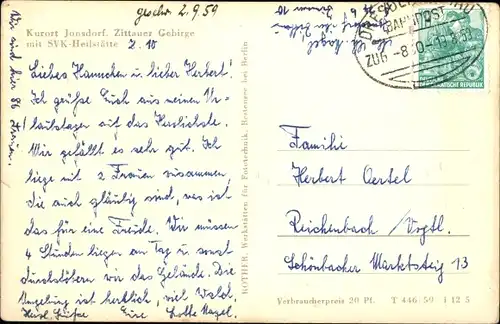 geschr. 2.9.59
Kurort Jonsdorf. Zittauer Gebirge
mit SVK-Heilstätte
Z. 10
Liebes Hannchen u. lieber Herbert!
Ich grüße Euch aus meinen Ur-
laubstagen auf das Herzlichste.
Mir gefällt es sehr gut. Ich
liege mit 2 Frauen zusammen,
die auch gläubig sind, was ist
das für eine Freude. Wir müssen
4 Stunden liegen am Tag u. sonst
durchstöbern wir das Gelände. Die
Umgebung ist herrlich, viel Wald.
Herzl. Grüße Eure Lotte Nagel.
Wir sind hier 86 Frauen.
ROTHER, Werkstätten für Fototechnik, Bestensee bei Berlin
BAHNPOST
ZUG
DEUTSCHE DEMOKRATISCHE REPUBLIK
Familie
Herbert Oertel
Reichenbach / Vogtl.
Schönbacher Marktsteig 13
Verbraucherpreis 20 Pf. T 446/59 I 12 5